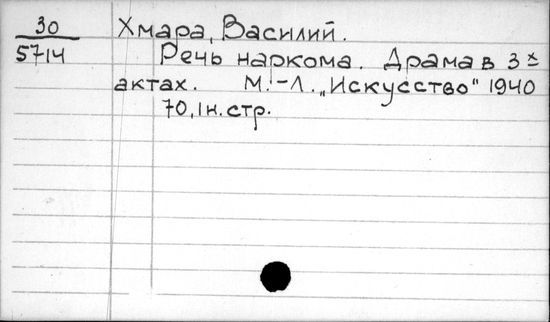 30
5714
Хмара, Василий.
Речь наркома. Драма в 3х
актах. М.-Л. „Искусство" 1940
70, 1 н. стр.